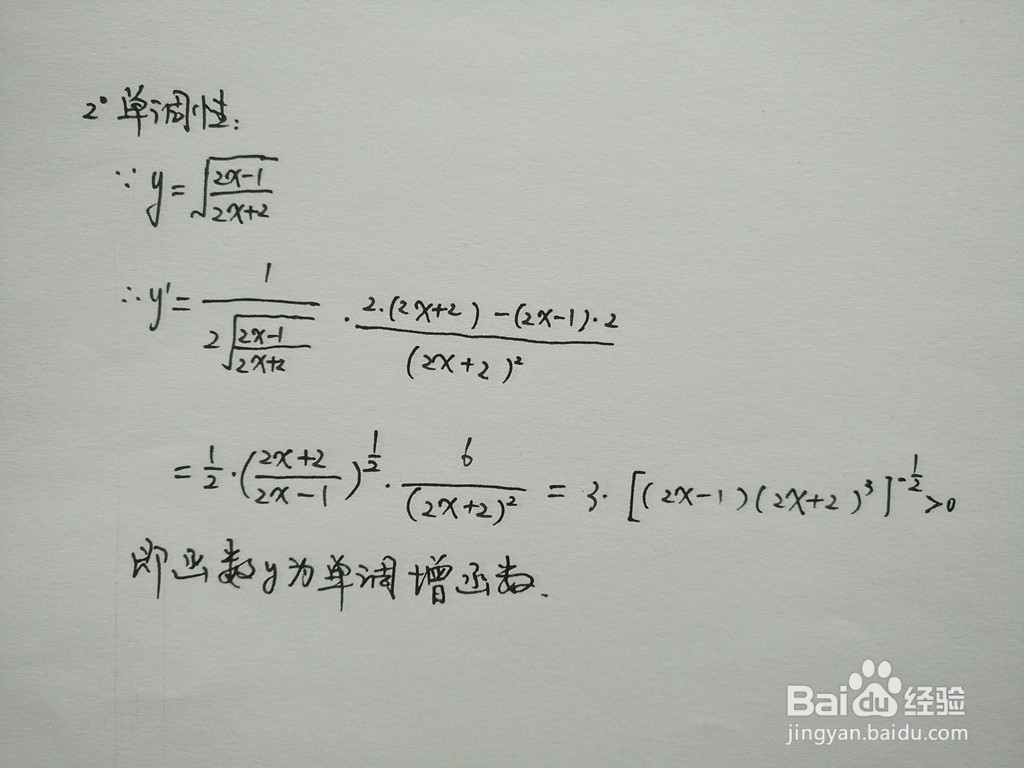 2° 单调性:
∵ y = √((2x-1)/(2x+2))
∴ y' = 1/(2√((2x-1)/(2x+2))) · (2·(2x+2)-(2x-1)·2)/(2x+2)²
= 1/2·((2x+2)/(2x-1))^(1/2) · 6/(2x+2)² = 3·[(2x-1)(2x+2)³]^(-1/2) >0
即函数y为单调增函数.
Bai du 经验
jingyan.baidu.com